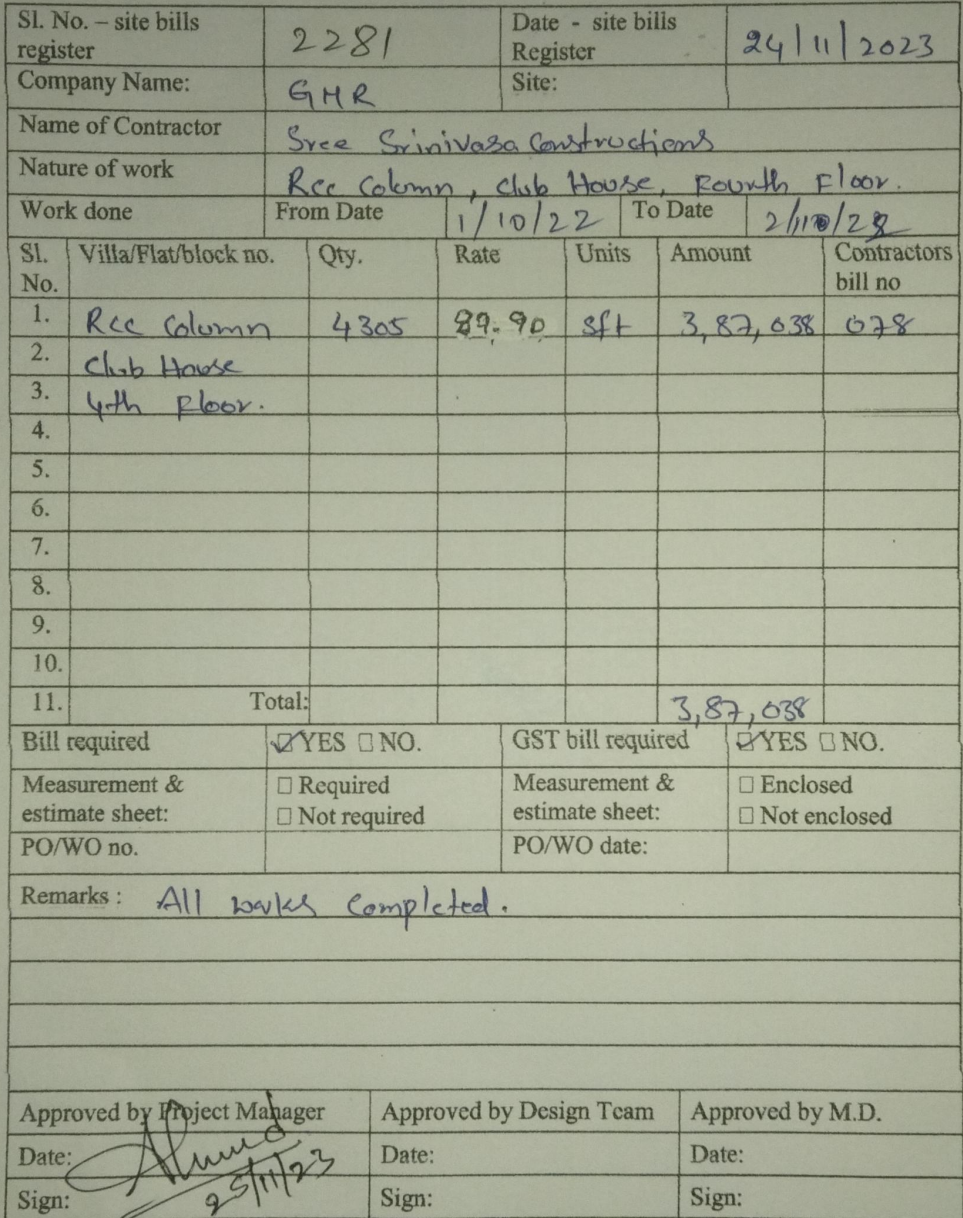 Sl. No. – site bills register 2281 Date - site bills Register 24/11/2023
Company Name: GMR Site:
Name of Contractor Sree Srinivasa Constructions
Nature of work Rcc Column, Club House, Fourth Floor.
Work done From Date 1/10/22 To Date
Sl. No. Villa/Flat/block no. Qty. Rate Units Amount Contractors bill no
1. Rcc Column 4305 89.90 sft 3,87,038 078
2. Club House
3. 4th Floor.
4.
5.
6.
7.
8.
9.
10.
11. Total: 3,87,038
Bill required ☑YES ☐NO. GST bill required ☑YES ☐NO.
Measurement & estimate sheet: ☐ Required ☐ Not required Measurement & estimate sheet: ☐ Enclosed ☐ Not enclosed
PO/WO no. PO/WO date:
Remarks : All works Completed.
Approved by Project Manager Approved by Design Team Approved by M.D.
Date: Date: Date:
25/11/23
Sign: Sign: Sign: